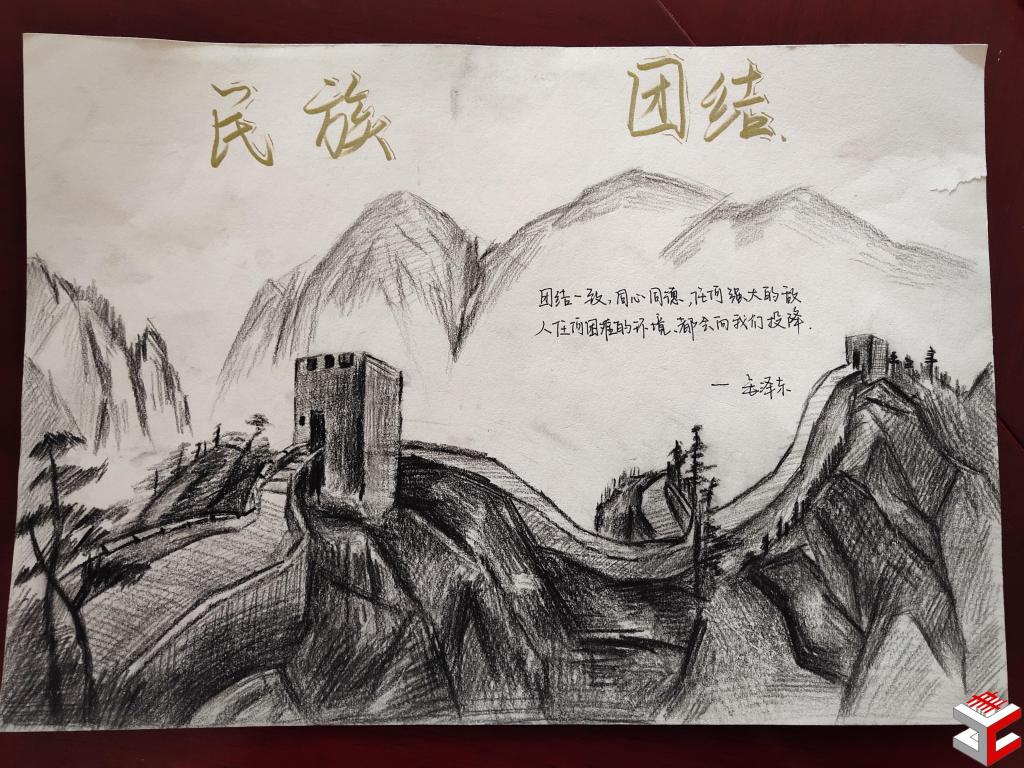 民族 团结
团结一致，同心同德，任何强大的敌
人任何困难的环境，都会向我们投降.
— 毛泽东